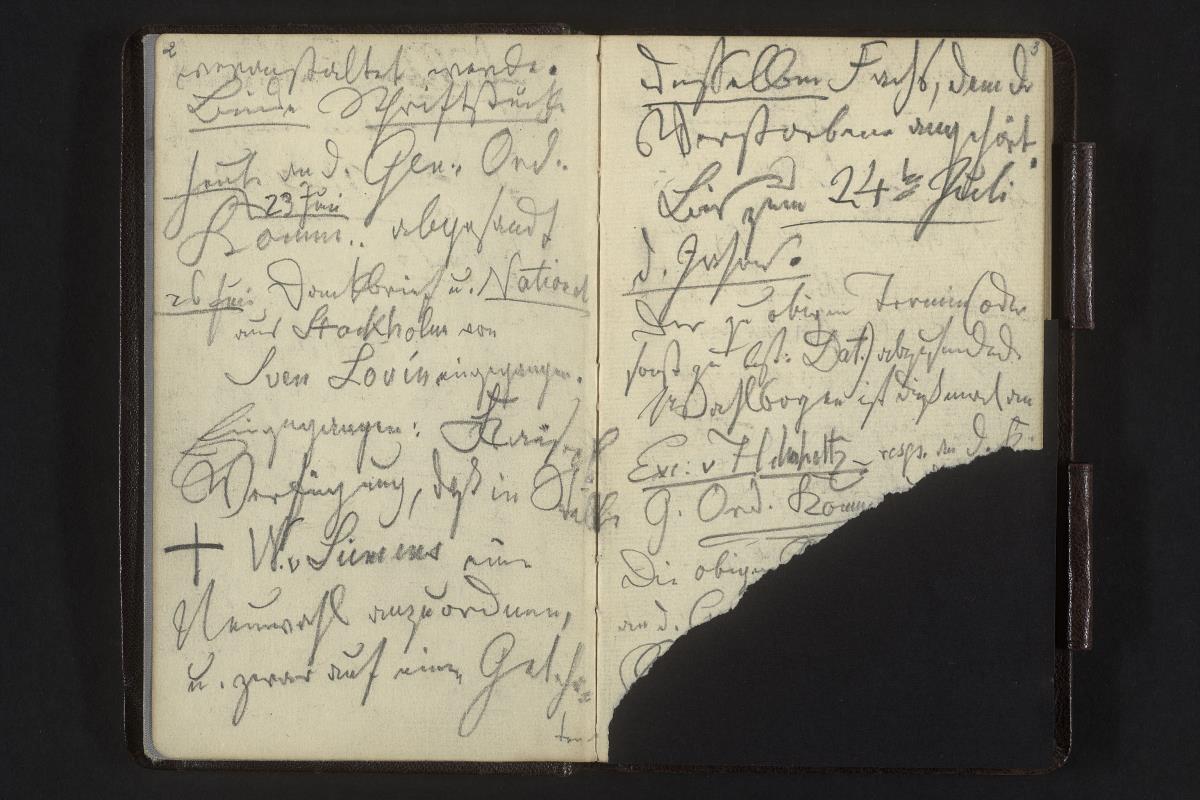 2
veranstaltet werde.
Beide Schriftstücke
heute an d. Gen. Ord.
23 Juni
Komm.. abgesandt
26 Juni Dankbrief u. National
aus Stockholm von
Sven Lovén eingegangen.
Eingegangen:
Verfügung, daß in Stelle
+ W. v Siemens eine
Neuwahl anzuordnen,
u. zwar auf einen Gelehr
ten
3
desselben Fachs, dem der
Verstorbene angehört.
Bis zum 24t Juli
d. Jahres.
Der zu obigem Termin (oder
sonst zu best: Dat.) abzusendede
Wahlbogen ist dießmal an
Exc: v Helmholtz resp. an d. K.
G. Ord. Komm
Die obigen
an d. G